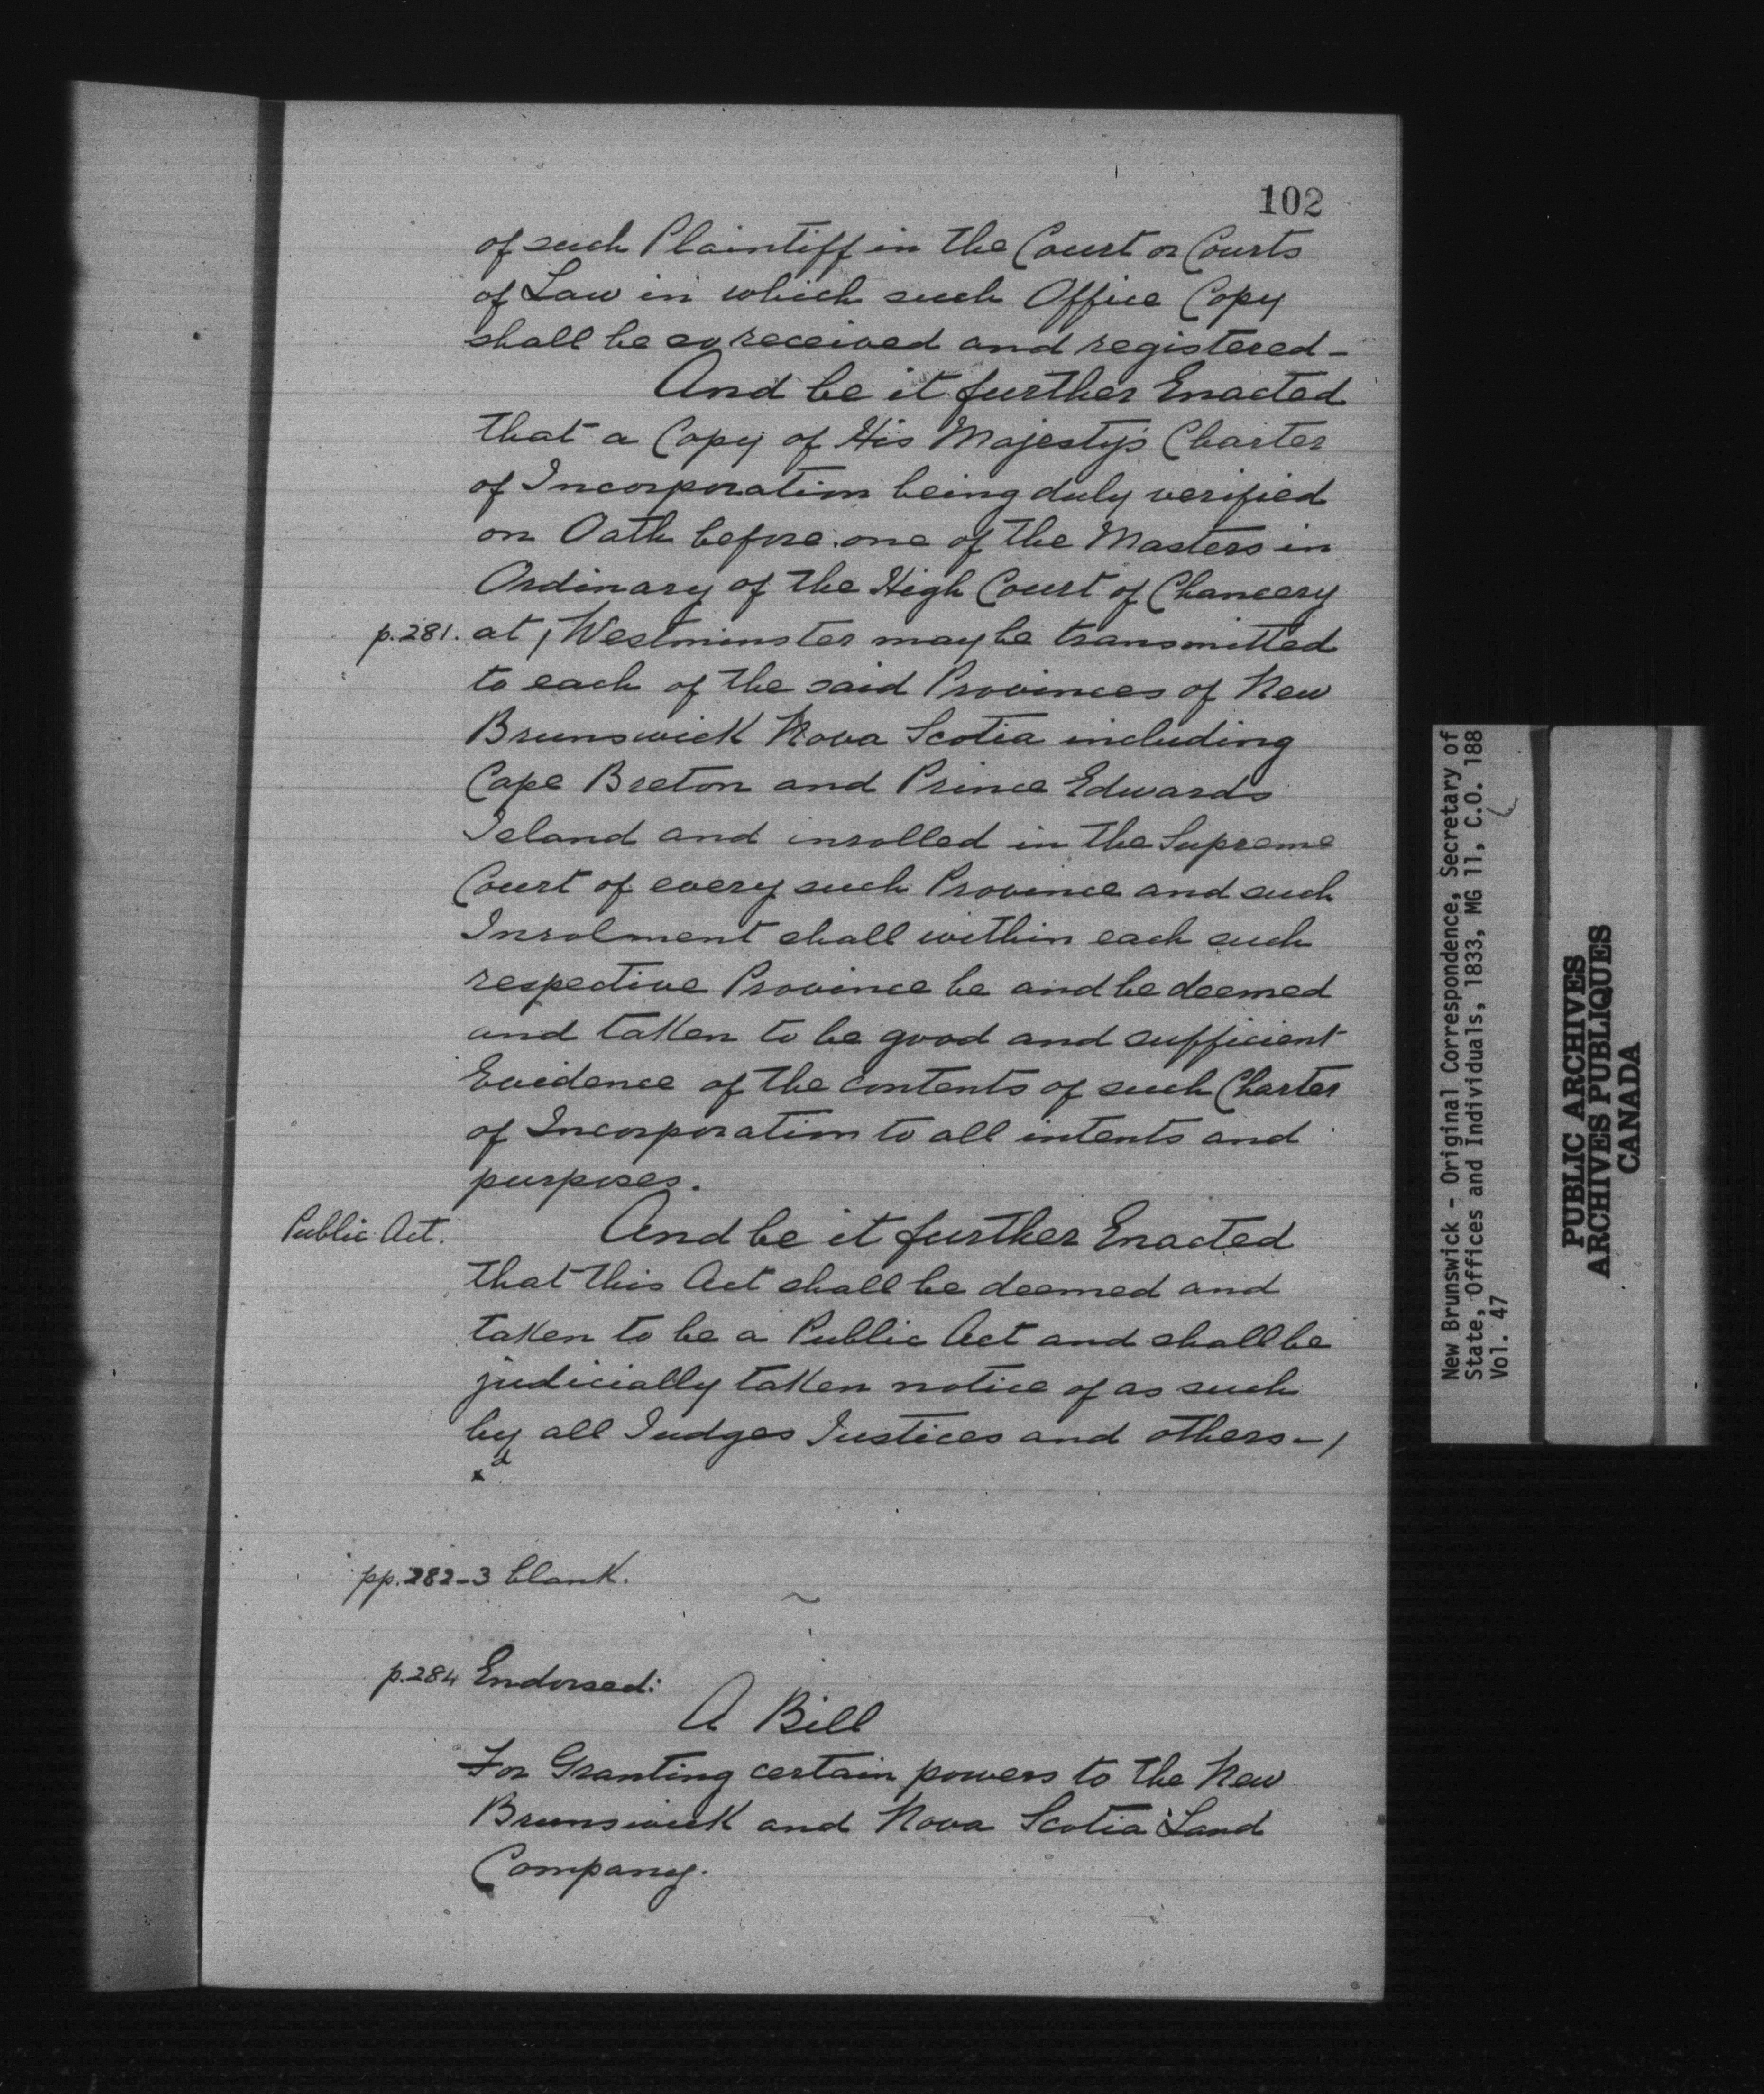 102
of such Plaintiff in the Court or Courts
of Law in which such Office Copy
shall be so received and registered -
And be it further Enacted
that a Copy of His Majesty's Charter
of Incorporation being duly verified
on Oath before one of the Masters in
Ordinary of the High Court of Chancery
p.281. at / Westminster may be transmitted
to each of the said Provinces of New
Brunswick Nova Scotia including
Cape Breton and Prince Edwards
Island and inrolled in the Supreme
Court of every such Province and such
Inrolment shall within each such
respective Province be and be deemed
and taken to be good and sufficient
Evidence of the contents of such Charter
of Incorporation to all intents and
purposes.
Public Act. And be it further Enacted
that this Act shall be deemed and
taken to be a Public Act and shall be
judicially taken notice of as such
by all Judges Justices and others - /
pp. 282-3 blank.
p.284 Endorsed:
A Bill
For Granting certain powers to the New
Brunswick and Nova Scotia Land
Company.
New Brunswick - Original Correspondence, Secretary of
State, Offices and Individuals, 1833, MG 11, C.O. 188
Vol. 47
PUBLIC ARCHIVES
ARCHIVES PUBLIQUES
CANADA